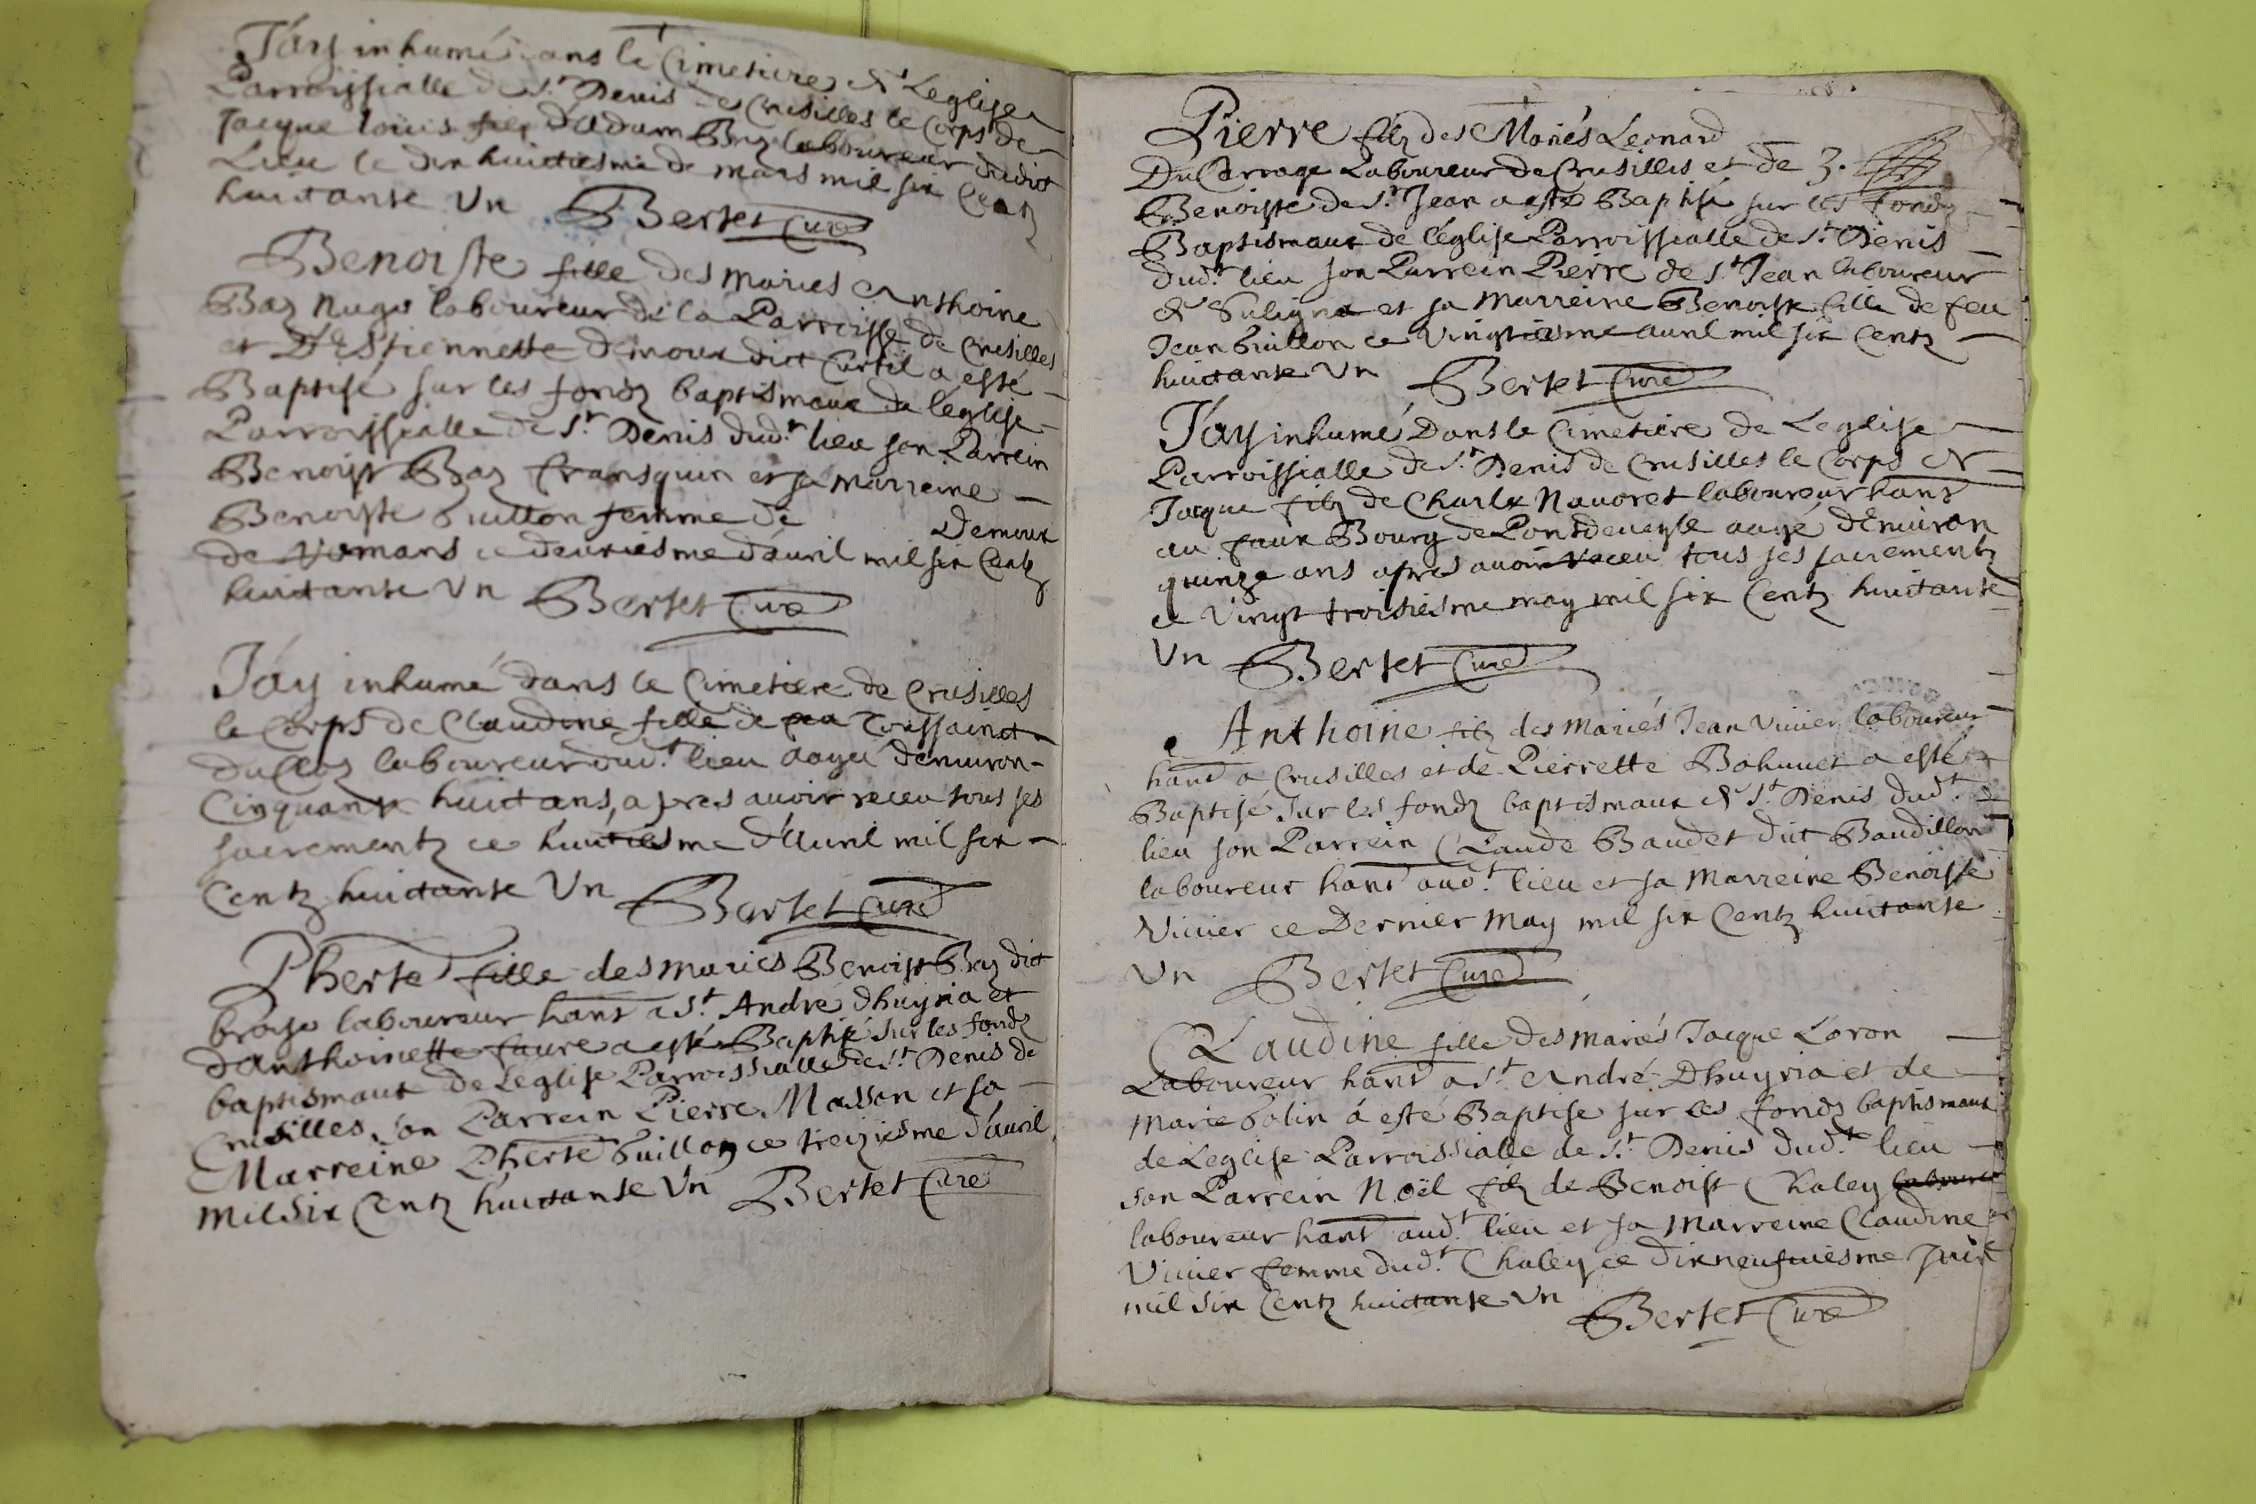 Jáy inhumé dans le Cimetiere de Leglise
Parroissialle de St Denis de Crusilles le Corps de
Jacque Loüis filz d'Adam Bey laboureur dudict
Lieu le dix huictiesme de mars mil six Centz
huictante Un Bertet Curé
Benoiste fille des Mariés Anthoine
Bay laboureur de la Parroisse de Crusilles
et D'Estiennette demoux dict Curtil a esté
Baptisé sur les fondz baptismaux de léglise
Parroissialle de St Denis dudt lieu son Parrein
Benoist Bay Fransquin et sa marreine
Benoiste buitton femme de Demoux
de ce deuxiesme d'auril mil six Centz
huictante Un Bertet Curé
Jáy inhumé dans le Cimetiere de Crusilles
le Corps de Claudine fille de feu Toussainct
Du Cloz laboureur dudt lieu aagé d'enuiron
Cinquante huict ans, apres auoir receu tous ses
sacrementz ce huictiesme d'Auril mil six
Centz huictante Un Bertet Curé
Pherte fille des mariés Benoist Bey dict
laboureur hant a St André dhuyria et
d'anthoinette faure a esté Baptisé sur les fondz
baptismaux de Leglise Parroissialle de St Denis de
Crusilles, son Parrein Pierre Masson et sa
Marreine Pherte buillon ce treiziesme d'auril
mil Six Centz huictante Un Bertet Curé
Pierre filz des Mariés Leonard
Du Carrage Laboureur de Crusilles et de 3.
Benoiste de St Jean a esté Baptisé sur les fondz
Baptismaux de léglise Parroissialle de St Denis
dudt lieu son Parrein Pierre de St Jean laboureur
de Suligna et sa Marreine Benoiste fille de feu
Jean buitton ce Vingtiesme auril mil six Centz
huictante Un Bertet Curé
Jáy inhumé Dans le Cimetiere de Leglise
Parroissialle de St Denis de Crusilles le Corps de
Jacque filz de Charle Nauoret laboureur hant
au faux Bourg de Pontdeueyle aagé dEnuiron
quinze ans apres auoir receu tous ses sacrementz
ce Vingt troisiesme may mil six Centz huictante
Un Bertet Curé
Anthoine filz des mariés Jean Viuier laboureur
hant a Crusilles et de Pierrette Bohuuet a esté
Baptisé sur les fondz baptismaux de St Denis dudt
lieu son Parrein Claude Baudet dict Baudillon
laboureur hant audt lieu et sa Marreine Benoiste
Viuier ce Dernier May mil six Centz huictante
Un Bertet Curé
Claudine fille des mariés Jacque Loron
Laboureur hant a St André Dhuyria et de
Marie bolin á esté Baptise sur les fondz baptismaux
de Leglise Parroissialle de St Denis dudt lieu
son Parrein Noël filz de Benoist Chaley
laboureur hant audt lieu et sa Marreine Claudine
Viuier femme dudt Chaley ce dixneufuiesme Juin
mil Six Centz huictante Un Bertet Curé